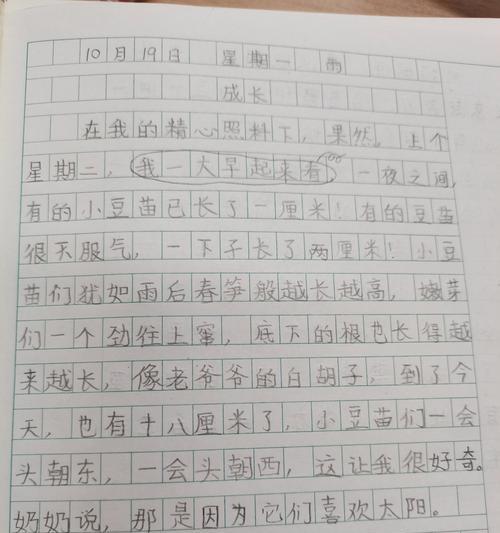 10月19日 星期一 雨
成长
在我的精心照料下，果然，上个
星期二，我一大早起来看，一夜之间，
有的小豆苗已长了一厘米！有的豆苗
很不服气，一下子长了两厘米！小豆
苗们犹如雨后春笋般越长越高，嫩芽
们一个劲往上窜，底下的根也长得越
来越长，像老爷爷的白胡子，到了今
天，也有十八厘米了，小豆苗们一会
头朝东，一会头朝西，这让我很好奇。
奶奶说，那是因为它们喜欢太阳。